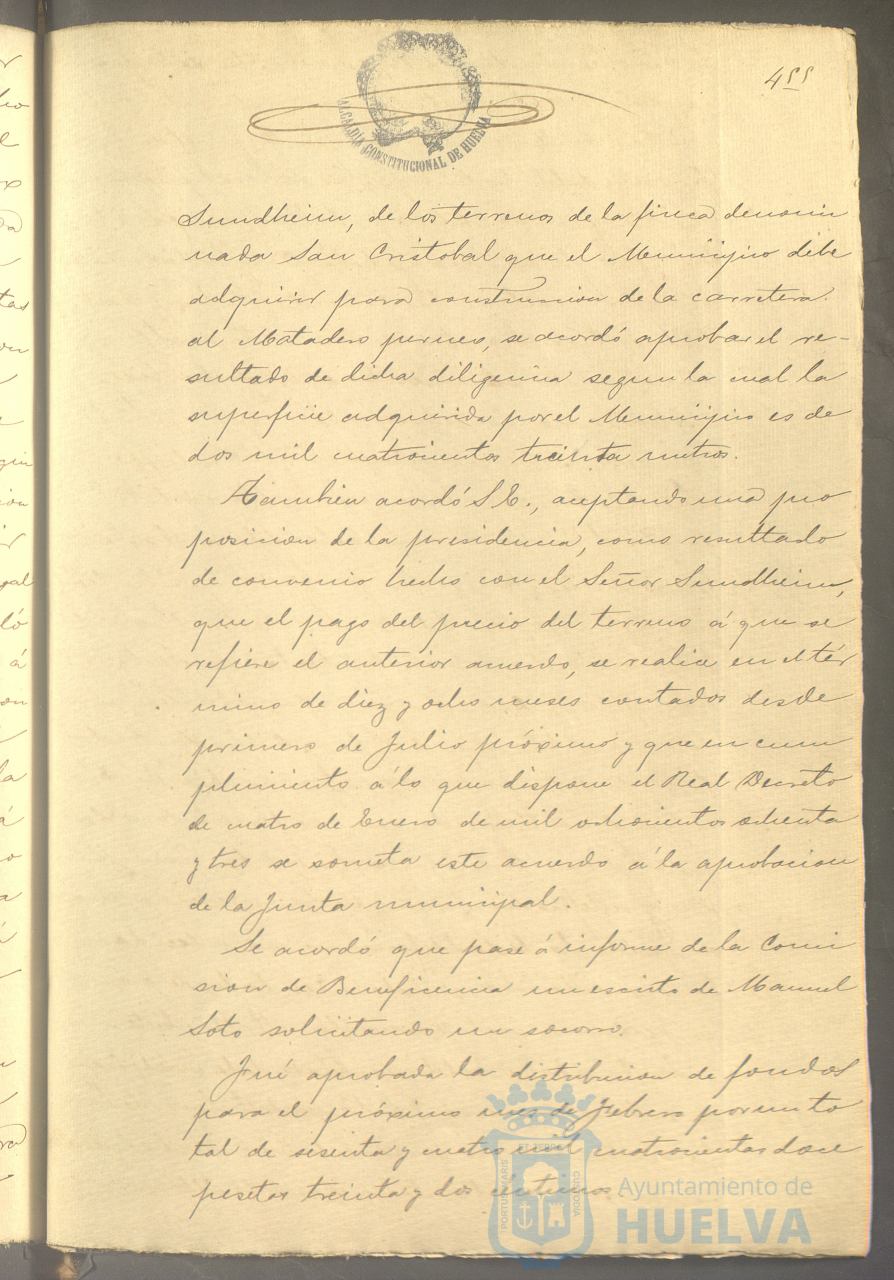 455
ALCALDIA CONSTITUCIONAL DE HUELVA
Sundheim, de los terrenos de la finca denomi
nada San Cristobal que el Municipio debe
adquirir para construccion de la carretera
al Matadero nuevo, se acordó aprobar el re-
sultado de dicha diligencia segun la cual la
superficie adquirida por el Municipio es de
dos mil cuatrocientos treinta metros.
Tambien acordó S. E., aceptando una pro
posicion de la presidencia, como resultado
de convenio hecho con el Señor Sundheim,
que el pago del precio del terreno á que se
refiere el anterior acuerdo, se realice en el tér
mino de diez y ocho meses contados desde
primero de Julio próximo y que en cum
plimiento á lo que dispone el Real Decreto
de cuatro de Enero de mil ochocientos ochenta
y tres se someta este acuerdo á la aprobacion
de la Junta municipal.
Se acordó que pase á informe de la Comi
sion de Beneficencia un escrito de Manuel
Soto solicitando un socorro.
Fué aprobada la distribucion de fondos
para el próximo mes de Febrero por un to
tal de sesenta y cuatro mil cuatrocientas doce
pesetas treinta y dos céntimos
PORTUS MARIS ET TERRE CUSTODIA
Ayuntamiento de
HUELVA